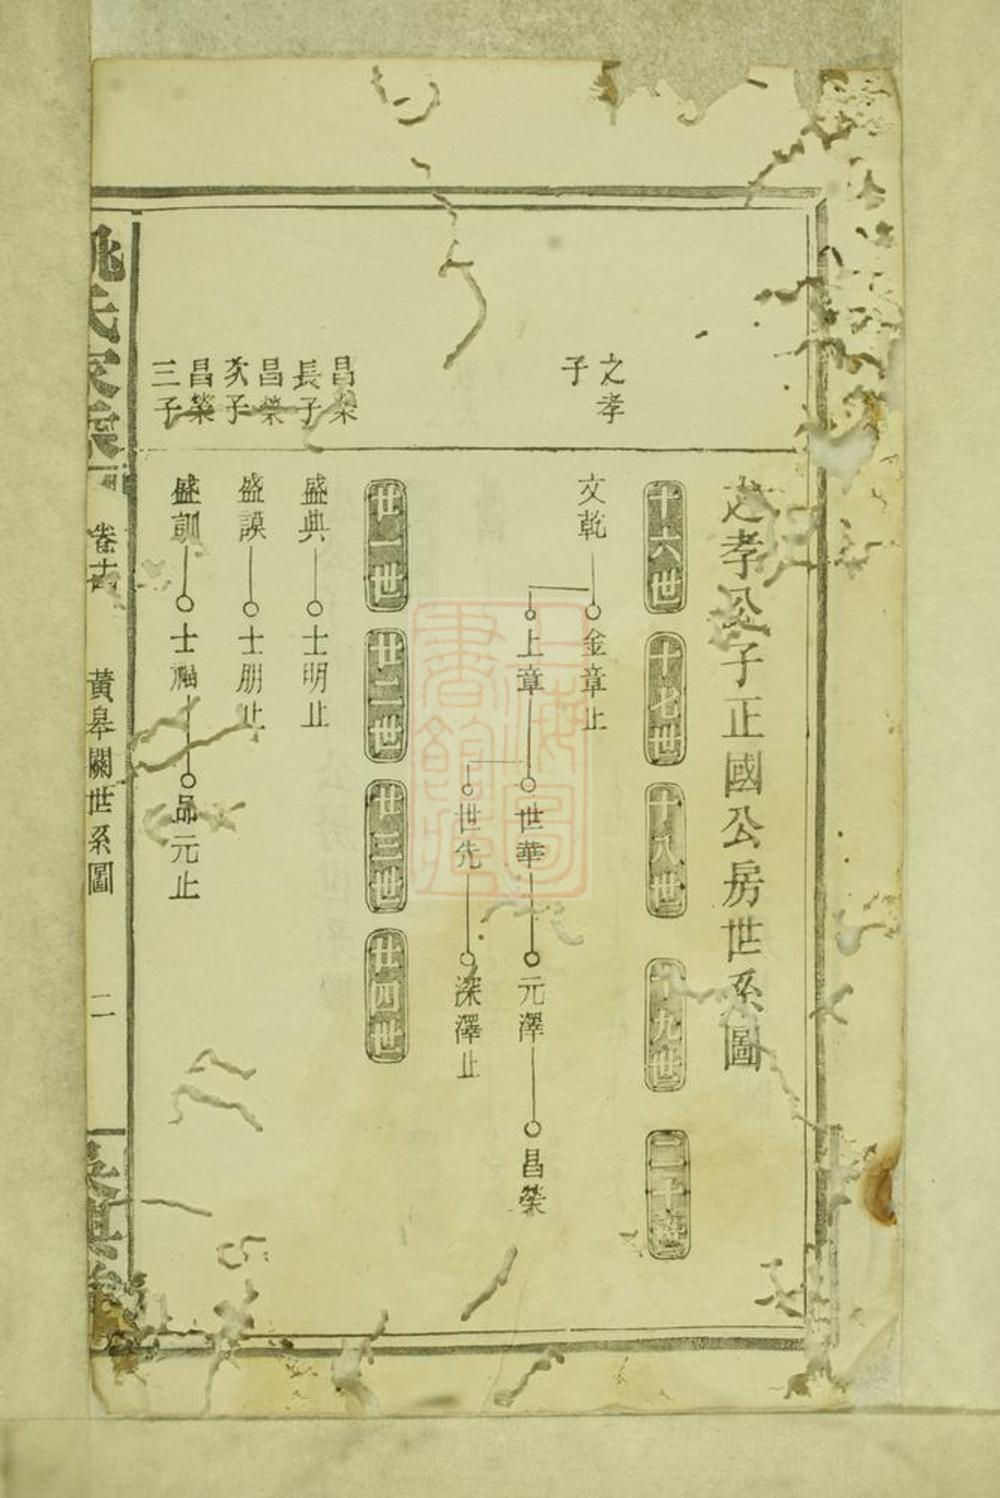 之孝公子正國公房世系圖
十六世
十七世
十八世
十九世
二十世
之孝
子
文乾
金章止
上章
世華
元澤
昌榮
世先
深澤止
廿一世
廿二世
廿三世
廿四世
昌榮
長子
盛典
士明止
昌榮
次子
盛謨
士朋止
昌榮
三子
盛訓
士福
品元止
姚氏家乘
黃皋關世系圖
二
上海圖書館藏